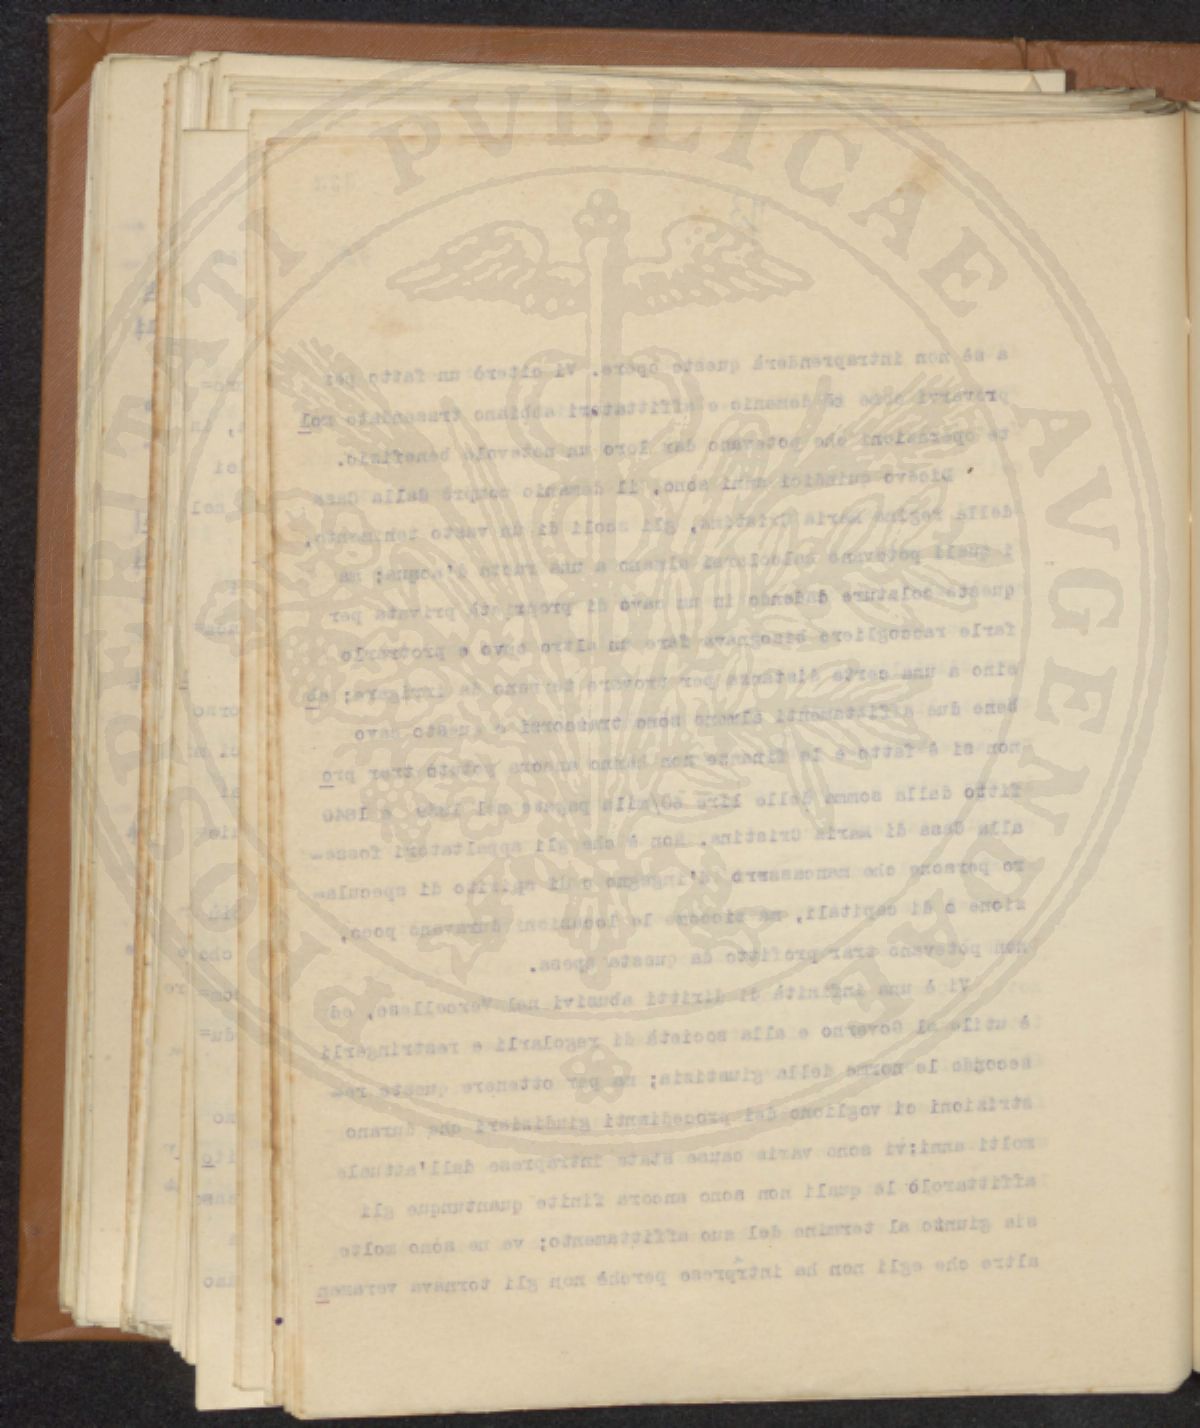 PROSPERITATI PUBLICAE AVGENDAE
a sè non intraprenderà queste opere. Vi citerò un fatto per
provarvi come demanio e affittatari abbiano trascurato mol
te operazioni che potevano dar loro un notevole benefizio.
Dicevo quindici anni sono, il demanio comprò dalla Casa
della regina Maria Cristina, gli scoli di un vasto tenimento,
i quali potevano calcolarsi almeno a una ruota d'acqua; ma
queste colature cadendo in un cavo di proprietà privata per
farle raccogliere bisognava fare un altro cavo e protrarlo
sino a una certa distanza per trovare terreno da irrigare; eb
bene due affittamenti almeno sono trascorsi e questo cavo
non si è fatto e le finanze non hanno ancora potuto trar pro
fitto dalla somma delle lire 60/mila pagate nel e 1840
alla Casa di Maria Cristina. Non è che gli appaltatori fosse=
ro persone che mancassero d'ingegno o di spirito di specula=
zione o di capitali, ma siccome le locazioni duravano poco,
non potevano trar profitto da questa spesa.
Vi è una infinità di diritti abusivi nel Vercellese, ed
è utile al Governo e alla società di regolarli e restringerli
secondo le norme della giustizia; ma per ottenere queste re=
strizioni ci vogliono dei procedimenti giudiziari che durano
molti anni:vi sono varie cause state intraprese dall'attuale
affittarolo le quali non sono ancora finite quantunque gli
sia giunto al termine del suo affittamento; ve ne sono molte
altre che egli non ha intrprese perchè non gli tornava veramen